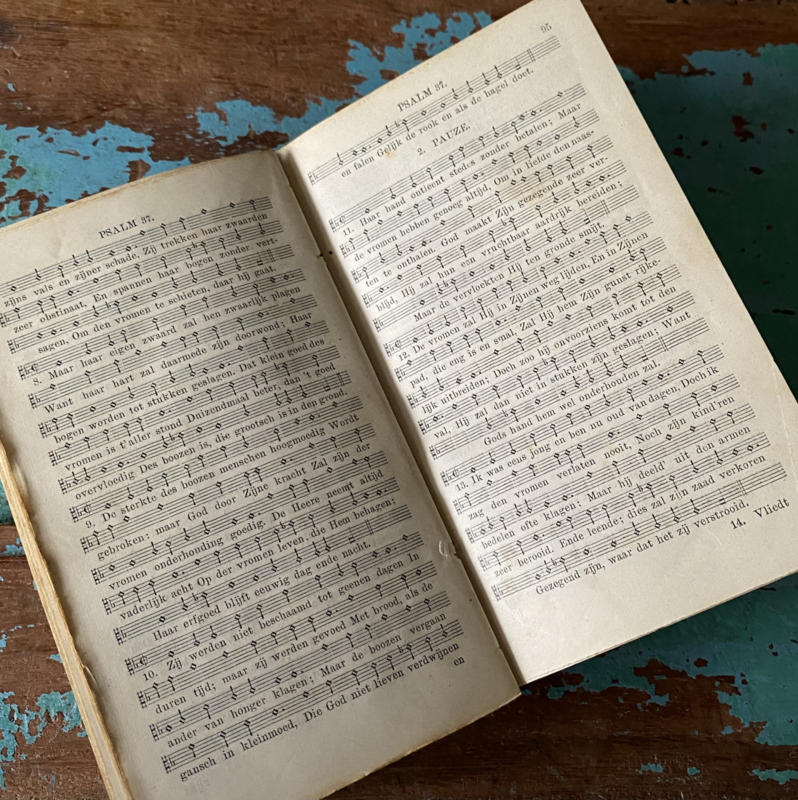 PSALM 37.
zijns vals en zijner schade. Zij trekken haar zwaarden
zeer obstinaat. En spannen haar bogen zonder vert-
sagen, Om den vromen te schieten, daar hij gaat.
8. Maar haar eigen zwaard zal hen zwaarlijk plagen
Want haar hart zal daarmede zijn doorwond; Haar
bogen worden tot stukken geslagen. Dat klein goed des
vromen is t'aller stond Duizendmaal beter, dan 't goed
overvloedig Des boozen is, die grootsch is in den grond.
9. De sterkte des boozen menschen hoogmoedig Wordt
gebroken; maar God door Zijne kracht Zal zijn der
vromen onderhonding goedig. De Heere neemt altijd
vaderlijk acht Op der vromen leven, die Hem behagen;
Haar erfgoed blijft eeuwig dag ende nacht.
10. Zij werden niet beschaamd tot geenen dagen In
duren tijd; maar zij werden gevoed Met brood, als de
ander van honger klagen; Maar de boozen vergaan
gansch in kleinmoed, Die God niet lieven verdwijnen
en
95
PSALM 37.
en falen Gelijk de rook en als de hagel doet.
2. PAUZE.
11. Haar hand ontleent stedes zonder betalen; Maar
de vromen hebben genoeg altijd, Om in liefde den naas-
ten te onthalen. God maakt Zijn gezegende zeer ver-
blijd, Hij zal hun een vruchtbaar aardrijk bereiden;
Maar de vervloekten Hij ten gronde smijt.
12. De vromen zal Hij in Zijnen weg lijden, En in Zijnen
pad, die eng is en smal, Zal Hij hem Zijn gunst rijke-
lijk uitbreiden; Doch zoo hij onvoorziens komt tot den
val, Hij zal dan niet in stukken zijn geslagen; Want
Gods hand hem wel onderhouden zal.
13. Ik was eens jong en ben nu oud van dagen, Doch ik
zag den vromen verlaten nooit, Noch zijn kind'ren
bedelen ofte klagen; Maar hij deeld' uit den armen
zeer berooid. Ende leende; dies zal zijn zaad verkoren
Gezegend zijn, waar dat het zij verstrooid.
14. Vliedt